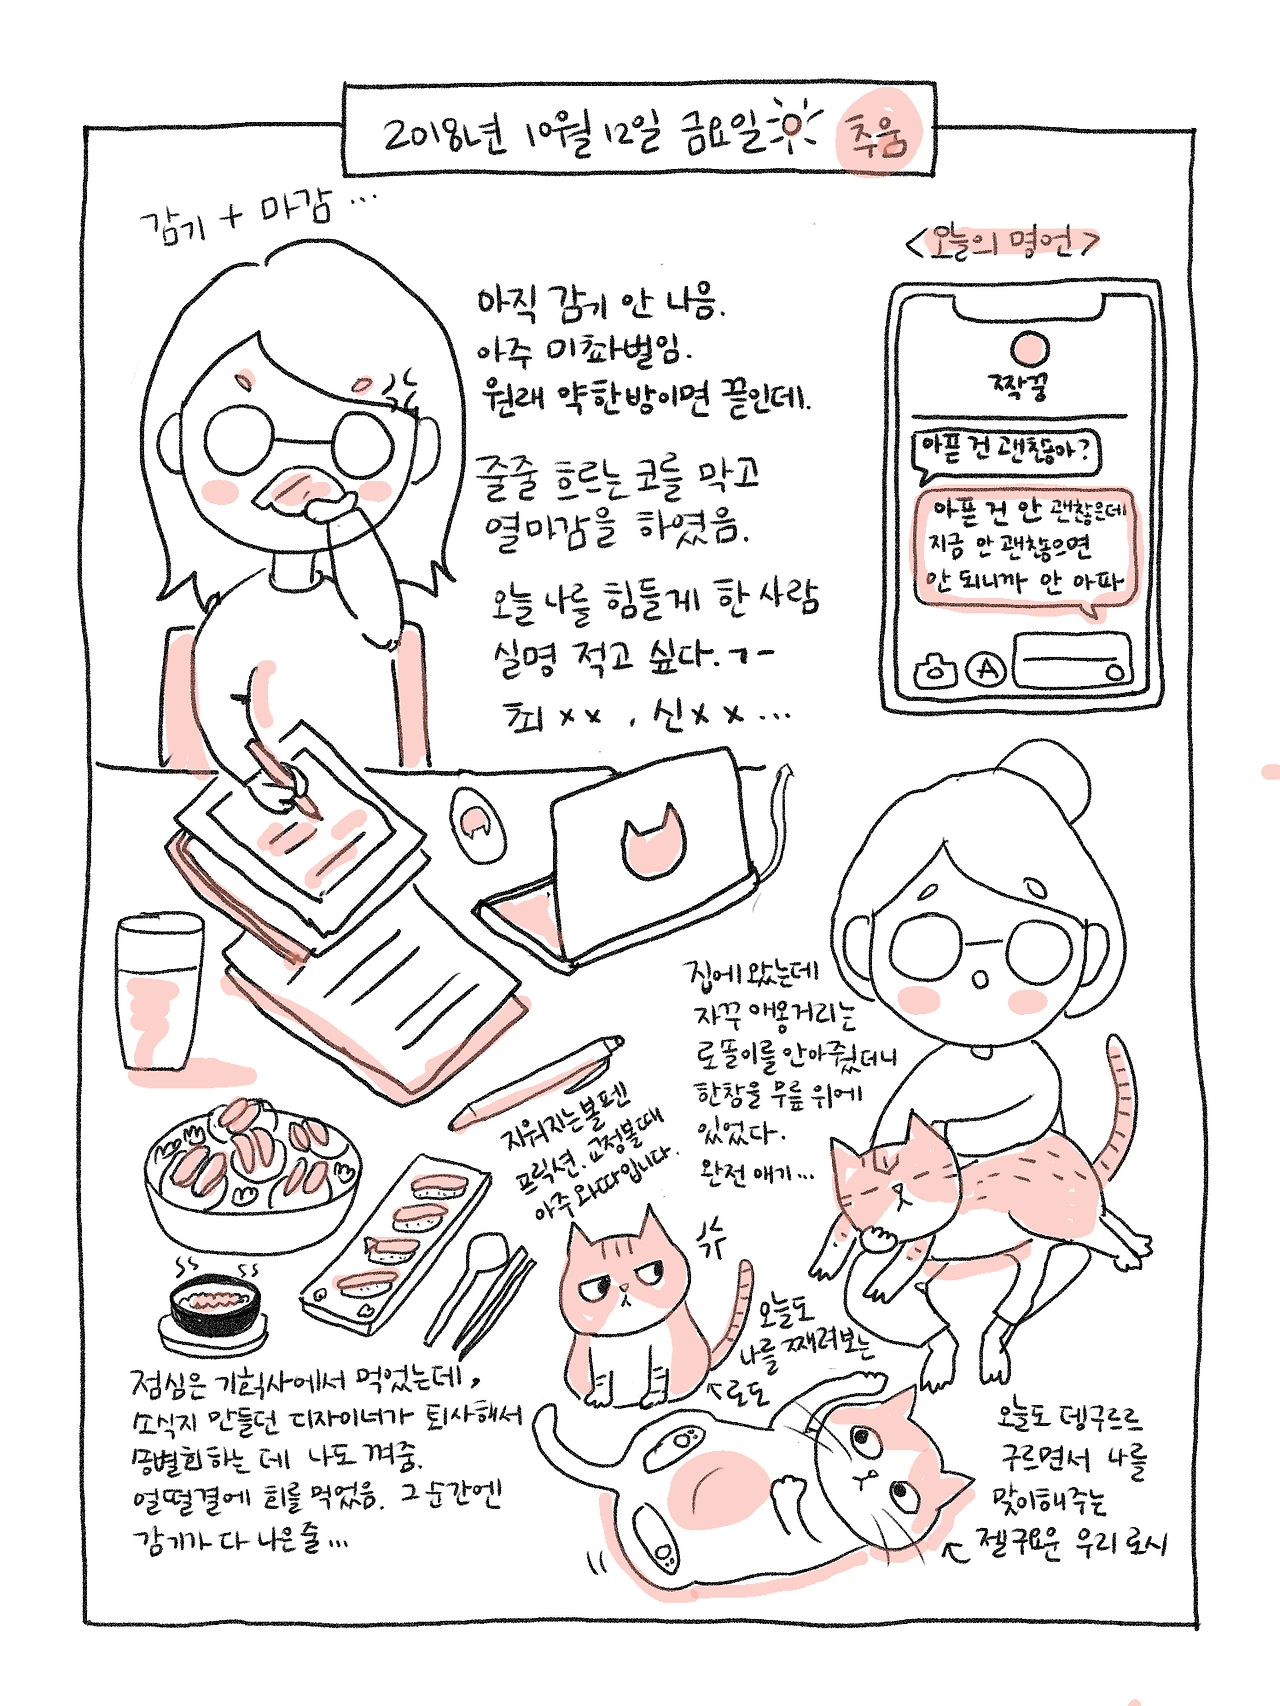 2018년 10월 12일 금요일 추움
감기 + 마감 ...
아직 감기 안 나음.
아주 미촤버림.
원래 약 한방이면 끝인데.
줄줄 흐르는 코를 막고
열마감을 하였음.
오늘 나를 힘들게 한 사람
실명 적고 싶다. ㄱ-
최 x x , 신 x x ...
<오늘의 명언>
짝꿍
아픈 건 괜찮아?
아픈 건 안 괜찮은데
지금 안 괜찮으면
안 되니까 안 아파
A
집에 왔는데
자꾸 애옹거리는
로똘이를 안아줬더니
한참을 무릎 위에
있었다.
완전 애기...
지워지는 볼펜
프릭션. 교정볼 때
아주 와따입니다.
오늘도
나를 째려보는
로도
점심은 기획사에서 먹었는데,
소식지 만들던 디자이너가 퇴사해서
송별회하는 데 나도 껴줌.
얼떨결에 회를 먹었음. 그 순간엔
감기가 다 나은 줄...
오늘도 뎅구르르
구르면서 나를
맞이해주는
젤 귀요운 우리 로시